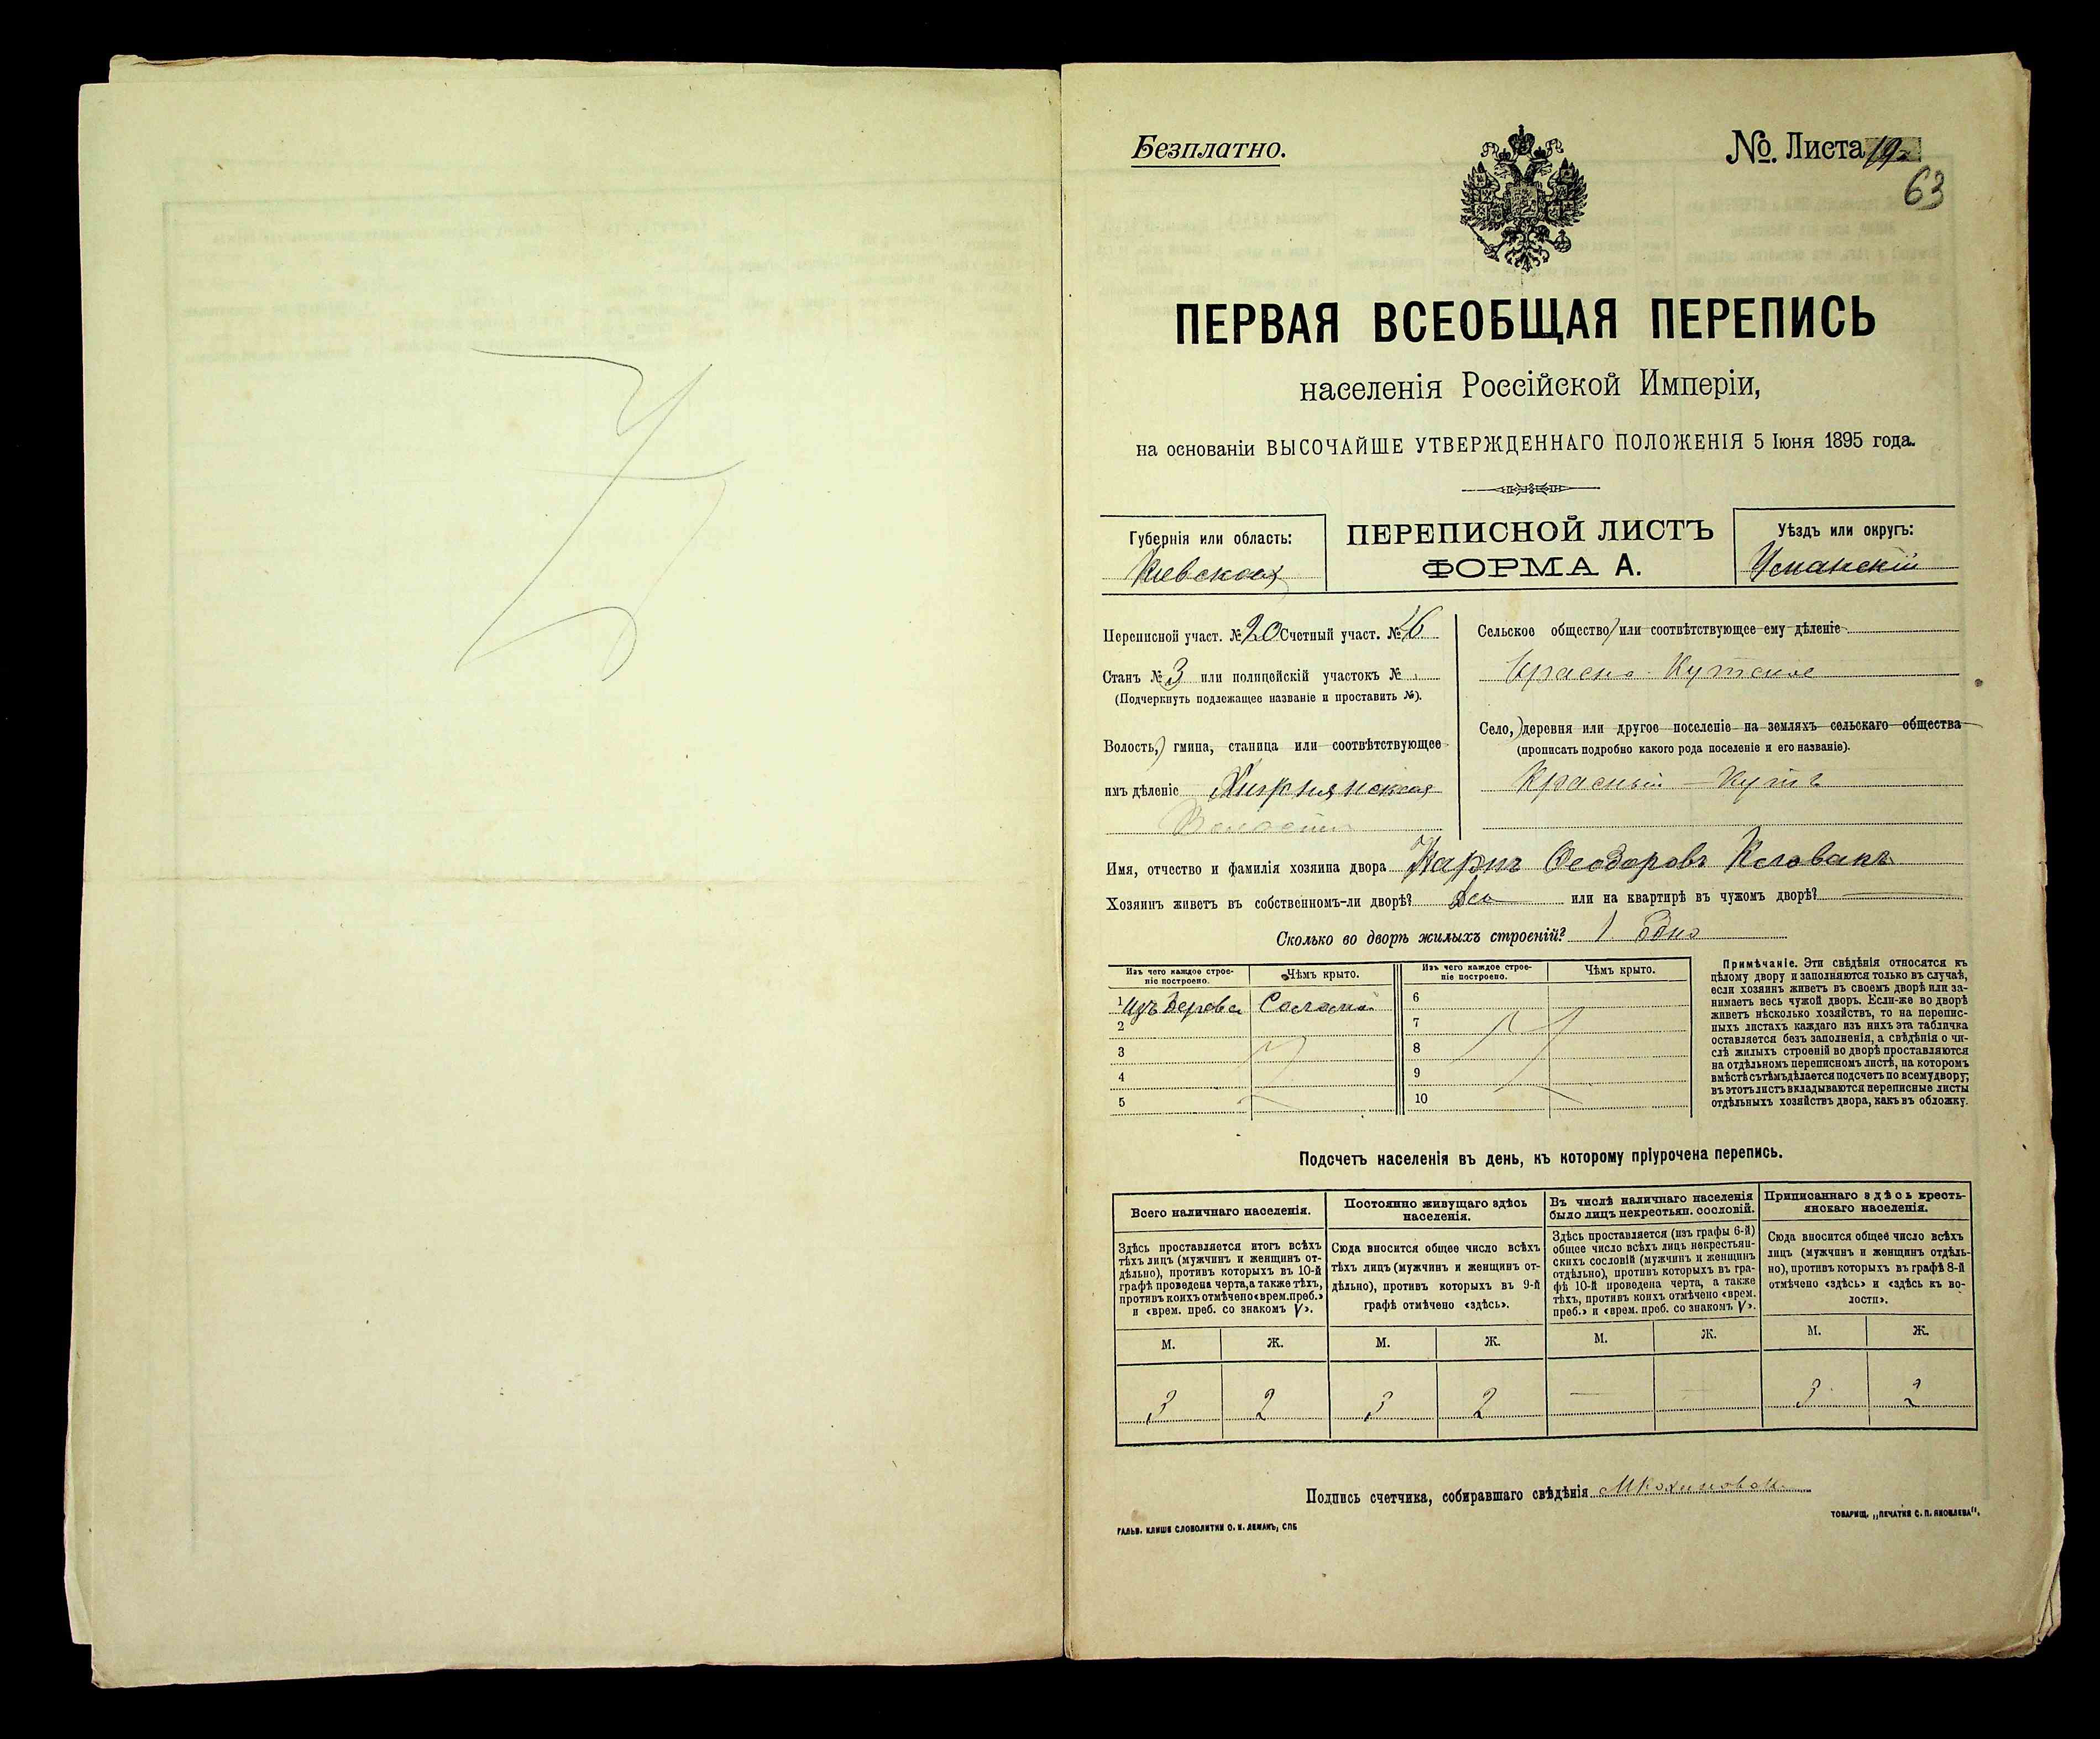 Безплатно.
No. Листа 19
63
ПЕРВАЯ ВСЕОБЩАЯ ПЕРЕПИСЬ
населенія Россійской Имперіи,
на основаніи ВЫСОЧАЙШЕ УТВЕРЖДЕННАГО ПОЛОЖЕНІЯ 5 Іюня 1895 года.
Губернія или область:
Кіевская
ПЕРЕПИСНОЙ ЛИСТЪ
ФОРМА А.
Уѣздъ или округъ:
Уманскій
Переписной участ. № 20 Счетный участ. № 16
Станъ № 3 или полицейскій участокъ №
(Подчеркнуть подлежащее названіе и проставить №).
Волость, гмина, станица или соотвѣтствующее
имъ дѣленіе
Волость
Сельское общество или соотвѣтствующее ему дѣленіе
Красно-Кутское
Село, деревня или другое поселеніе на земляхъ сельскаго общества
(прописать подробно какого рода поселеніе и его названіе).
Красный-Кутъ
Имя, отчество и фамилія хозяина двора Карпъ Феодоровъ
Хозяинъ живетъ въ собственномъ-ли дворѣ? или на квартирѣ въ чужомъ дворѣ?
Сколько во дворѣ жилыхъ строеній? 1 Одно
Изъ чего каждое строе-
ніе построено.
Чѣмъ крыто.
Изъ чего каждое строе-
ніе построено.
Чѣмъ крыто.
1 Изъ дерева Соломой
2
3
4
5
6
7
8
9
10
Примѣчаніе. Эти свѣдѣнія относятся къ
цѣлому двору и заполняются только въ случаѣ,
если хозяинъ живетъ въ своемъ дворѣ или за-
нимаетъ весь чужой дворъ. Если-же во дворѣ
живетъ нѣсколько хозяйствъ, то на перепис-
ныхъ листахъ каждаго изъ нихъ эта табличка
оставляется безъ заполненія, а свѣдѣнія о чи-
слѣ жилыхъ строеній во дворѣ проставляются
на отдѣльномъ переписномъ листѣ, на которомъ
вмѣстѣ съ тѣмъ дѣлается подсчетъ по всему двору;
въ этотъ листъ вкладываются переписные листы
отдѣльныхъ хозяйствъ двора, какъ въ обложку.
Подсчетъ населенія въ день, къ которому пріурочена перепись.
Всего наличнаго населенія.
Здѣсь проставляется итогъ всѣхъ
тѣхъ лицъ (мужчинъ и женщинъ от-
дѣльно), противъ которыхъ въ 10-й
графѣ проведена черта, а также тѣхъ,
противъ коихъ отмѣчено «врем. преб.»
и «врем. преб. со знакомъ V».
Постоянно живущаго здѣсь
населенія.
Сюда вносится общее число всѣхъ
тѣхъ лицъ (мужчинъ и женщинъ от-
дѣльно), противъ которыхъ въ 9-й
графѣ отмѣчено «здѣсь».
Въ числѣ наличнаго населенія
было лицъ некрестьян. сословій.
Здѣсь проставляется (изъ графы 6-й)
общее число всѣхъ лицъ некрестьян-
скихъ сословій (мужчинъ и женщинъ
отдѣльно), противъ которыхъ въ гра-
фѣ 10-й проведена черта, а также
тѣхъ, противъ коихъ отмѣчено «врем.
преб.» и «врем. преб. со знакомъ V».
Приписаннаго здѣсь кресть-
янскаго населенія.
Сюда вносится общее число всѣхъ
лицъ (мужчинъ и женщинъ отдѣль-
но), противъ которыхъ въ графѣ 8-й
отмѣчено «здѣсь» и «здѣсь къ во-
лости».
М. Ж. М. Ж. М. Ж. М. Ж.
3 2 3 2 — — 3 2
Подпись счетчика, собиравшаго свѣдѣнія
ГАЛЬВ. КЛИШЕ СЛОВОЛИТНИ О. И. ЛЕМАНЪ, СПБ
ТОВАРИЩ. „ПЕЧАТНЯ С. П. ЯКОВЛЕВА".